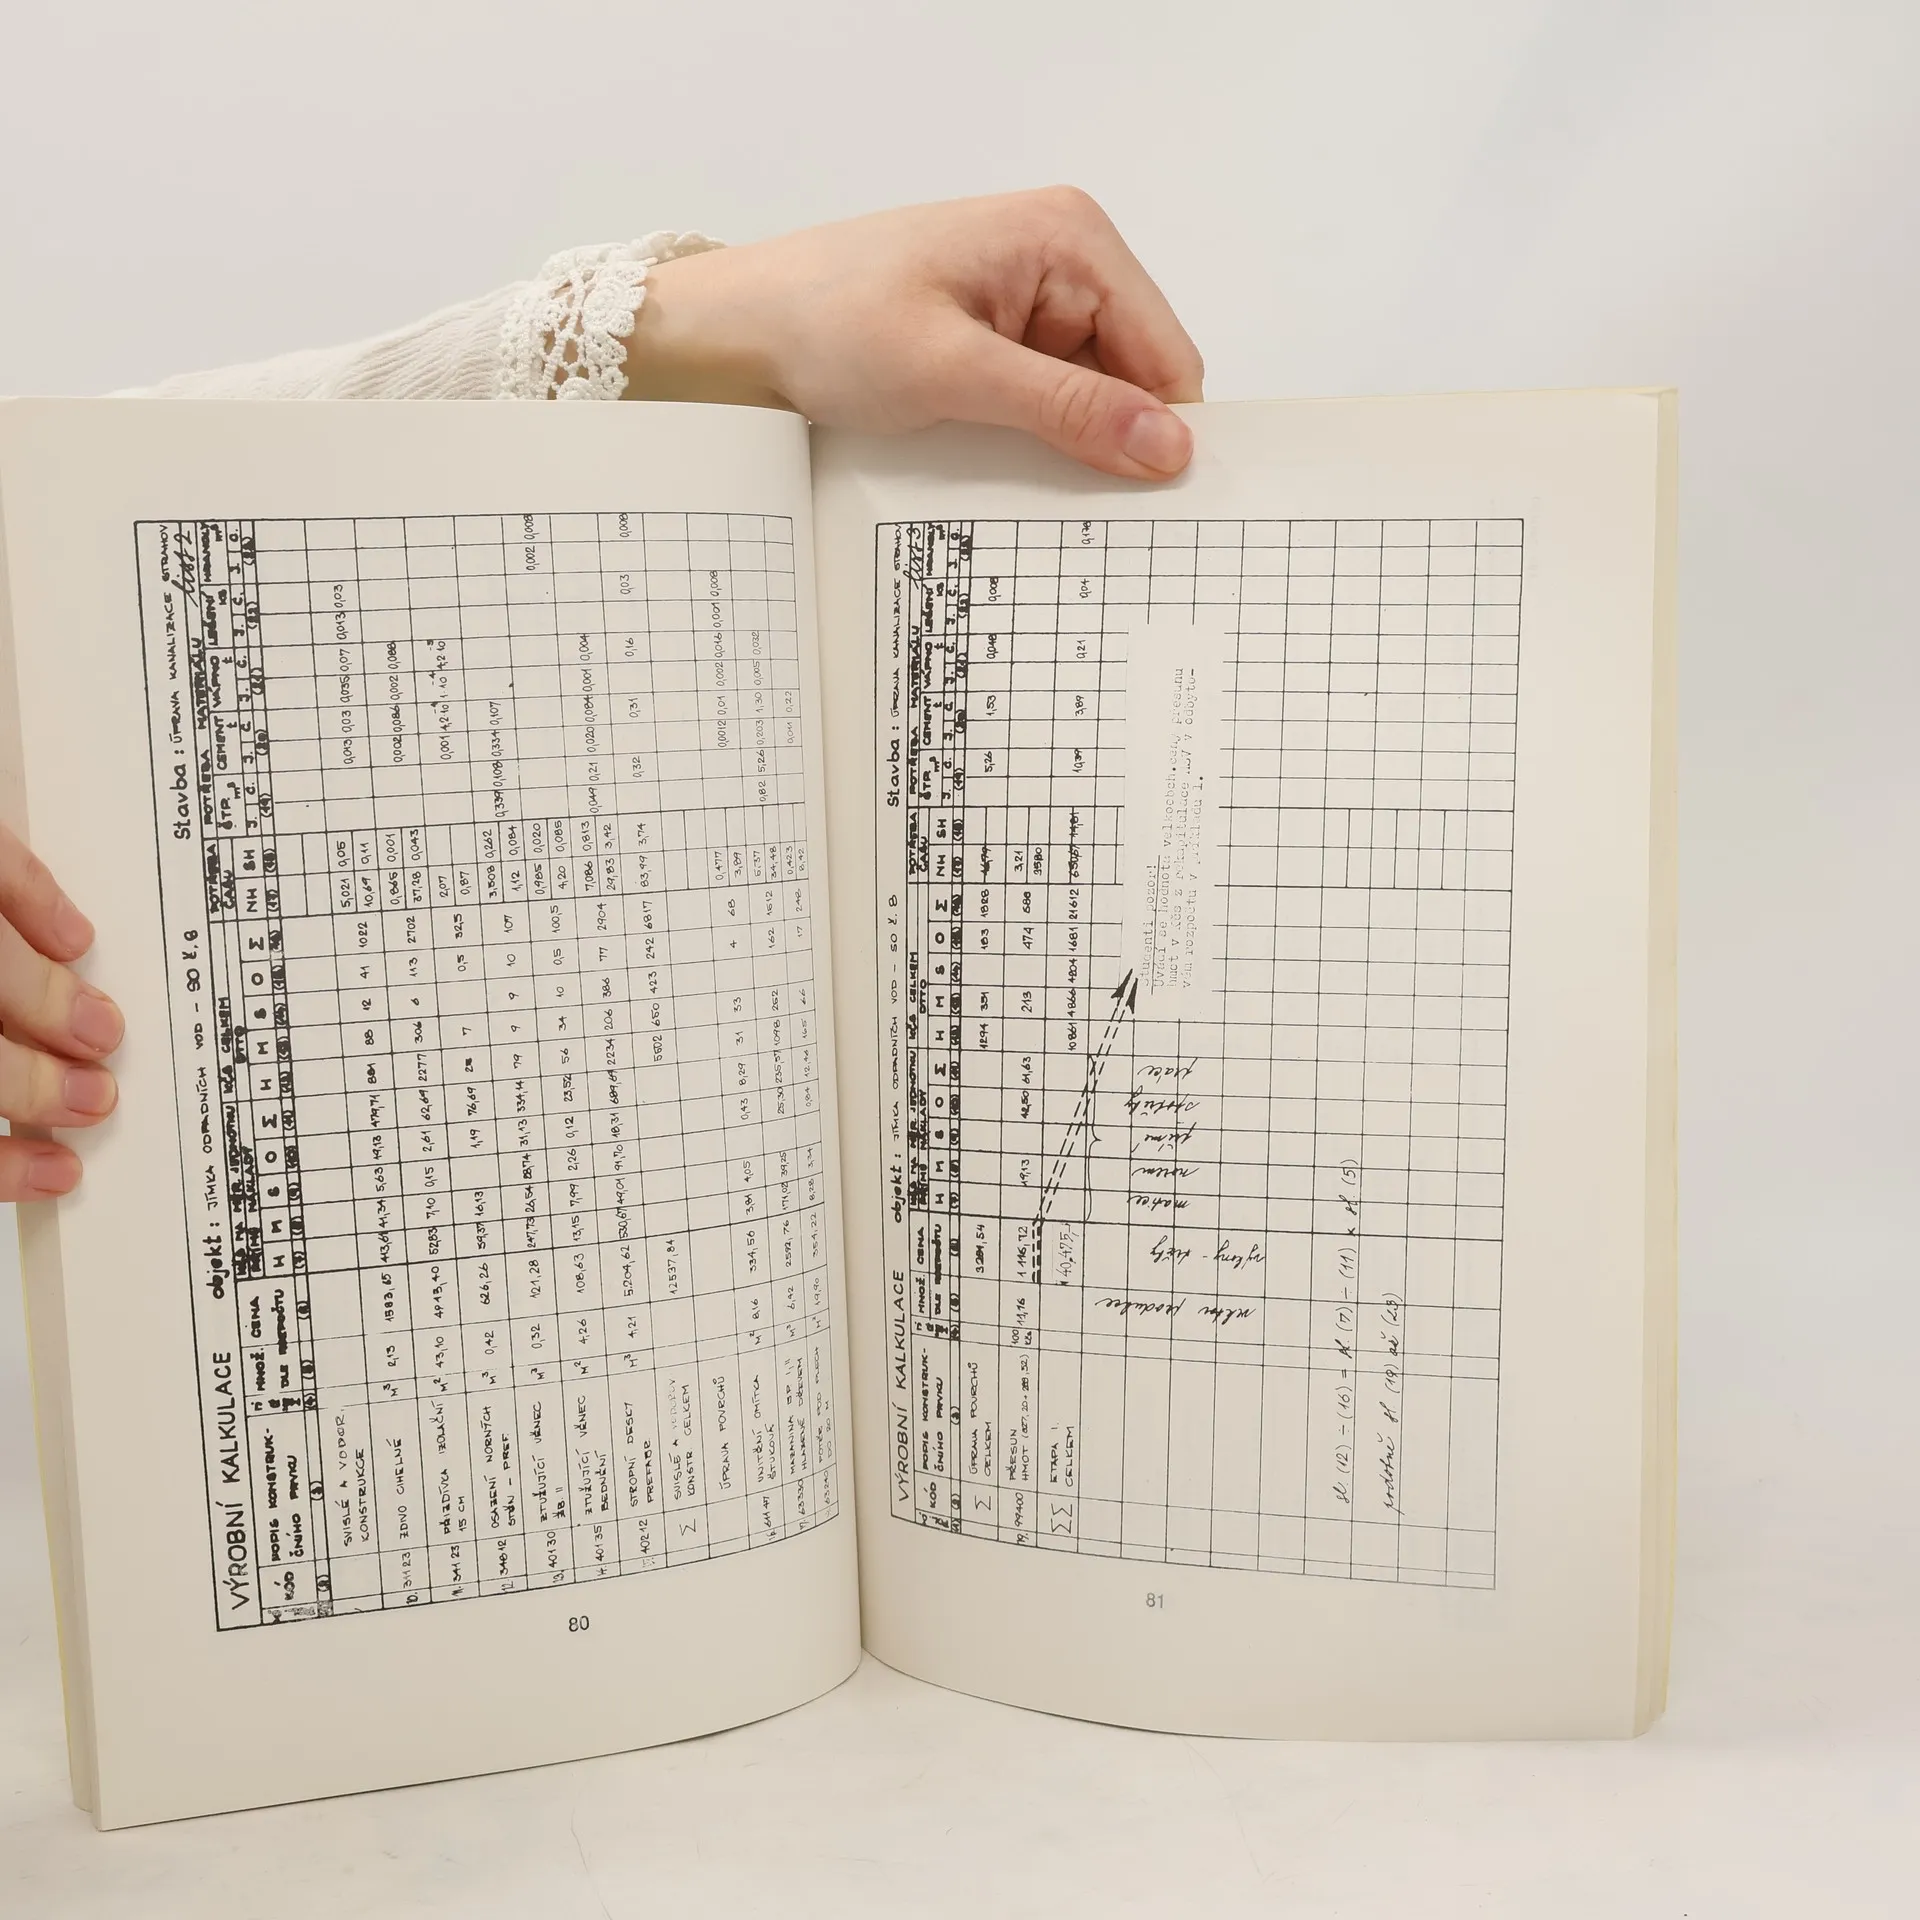 VÝROBNÍ KALKULACE objekt: JÍMKA ODPADNÍCH VOD - SO č. 8 Stavba: ÚPRAVA KANALIZACE STRAHOV
list 2
KÓD POPIS KONSTRUK- MNOŽ. CENA KČS NA MĚR. JEDNOTKU KČS CELKEM POTŘEBA POTŘEBA MATERIÁLU
ČNÍHO PRVKU DLE ROZPOČTU PŘÍMÉ NÁKLADY DITTO ČASU ŠTP. CEMENT VÁPNO LEŠENÍ HRANOLY
H M S O Σ H M S O Σ NH SH J. C. J. C. J. C. J. C. J. C.
SVISLÉ A VODOR.
KONSTRUKCE
10. 311 23 ZDIVO CIHELNÉ M³ 2,13 1583,65 413,61 41,34 5,63 19,13 479,71 881 88 12 41 1022 5,021 0,05 0,013 0,03 0,035 0,07 0,013 0,03
10,69 0,11
11. 341 23 PŘIZDÍVKA IZOLAČNÍ M² 43,10 4913,40 52,83 7,10 0,15 2,61 62,69 2277 306 6 113 2702 0,865 0,001 0,002 0,086 0,002 0,086
15 CM 37,28 0,043
12. 348 12 OSAZENÍ NORNÝCH M³ 0,42 626,26 59,37 16,13 1,19 76,69 7 0,5 32,5 2,07
STĚN - PREF. 0,87
13. 401 30 ZTUŽUJÍCÍ VĚNEC M³ 0,32 121,28 247,73 26,54 28,74 31,13 334,14 79 9 9 10 107 3,508 0,262 0,339 0,108 0,334 0,107 0,002 0,008
ŽB II 1,12 0,084
14. 401 35 ZTUŽUJÍCÍ VĚNEC M² 4,26 108,63 13,15 7,99 2,26 0,12 23,52 56 34 10 0,5 100,5 0,985 0,020
BEDNĚNÍ 4,20 0,085
15. 402 12 STROPNÍ DESKY M³ 4,21 5.204,62 530,67 49,01 91,70 18,31 689,69 2234 206 386 77 2904 7,086 0,813 0,049 0,21 0,020 0,084 0,001 0,004
PREFABR. 29,83 3,42
Σ SVISLÉ A VODOROV. 12537,84 5502 650 423 242 6817 83,99 3,74 0,32 0,31 0,16 0,03 0,008
KONSTR CELKEM
ÚPRAVA POVRCHŮ
16. 611 47 VNITŘNÍ OMÍTKA M² 8,16 334,56 3,81 4,05 0,43 8,29 31 33 4 68 0,477 0,0012 0,01 0,002 0,016 0,001 0,008
ŠTUKOVÁ 3,89
17. 633 30 MAZANINA M³ 6,42 2592,76 171,02 39,25 25,30 235,57 1098 252 162 1512 5,37 0,82 5,26 0,203 1,30 0,005 0,032
HLAZENÉ DŘEVEM 34,48
632 40 POTĚR POD PLECH M² 19,90 354,22 8,28 3,34 0,84 12,46 165 66 17 248 0,423 0,011 0,22
DO 20 M 8,42
80
VÝROBNÍ KALKULACE objekt: JÍMKA ODPADNÍCH VOD - SO č. 8 Stavba: ÚPRAVA KANALIZACE STRAHOV
list 3
KÓD POPIS KONSTRUK- MNOŽ. CENA KČS NA MĚR. JEDNOTKU KČS CELKEM POTŘEBA POTŘEBA MATERIÁLU
ČNÍHO PRVKU DLE ROZPOČTU PŘÍMÉ NÁKLADY DITTO ČASU ŠTP. CEMENT VÁPNO LEŠENÍ HRANOLY
H M S O Σ H M S O Σ NH SH J. C. J. C. J. C. J. C. J. C.
Σ ÚPRAVA POVRCHŮ 3281,54 1294 351 183 1828 46,79 5,26 1,53 0,048 0,008
CELKEM
19. 99 9400 PŘESUN 11,16 1 116,72 19,13 42,50 61,63 213 474 688 3,21
HMOT
ΣΣ ETAPA I. 40.475,- 10861 4866 4204 1681 21612 10,39 3,89 0,21 0,04 0,178
CELKEM
Studenti pozor!
Uvádí se hodnota velkoobch. ceny přesunu
hmot v Kčs z rekapitulace HSV v odbyto-
vém rozpočtu v příkladu 1.
práce
přímé
norem
matice
výkony -
produkce
sl. (12) ÷ (16) = sl. (7) ÷ (11) × sl. (5)
podobně sl (19) až (23)
81